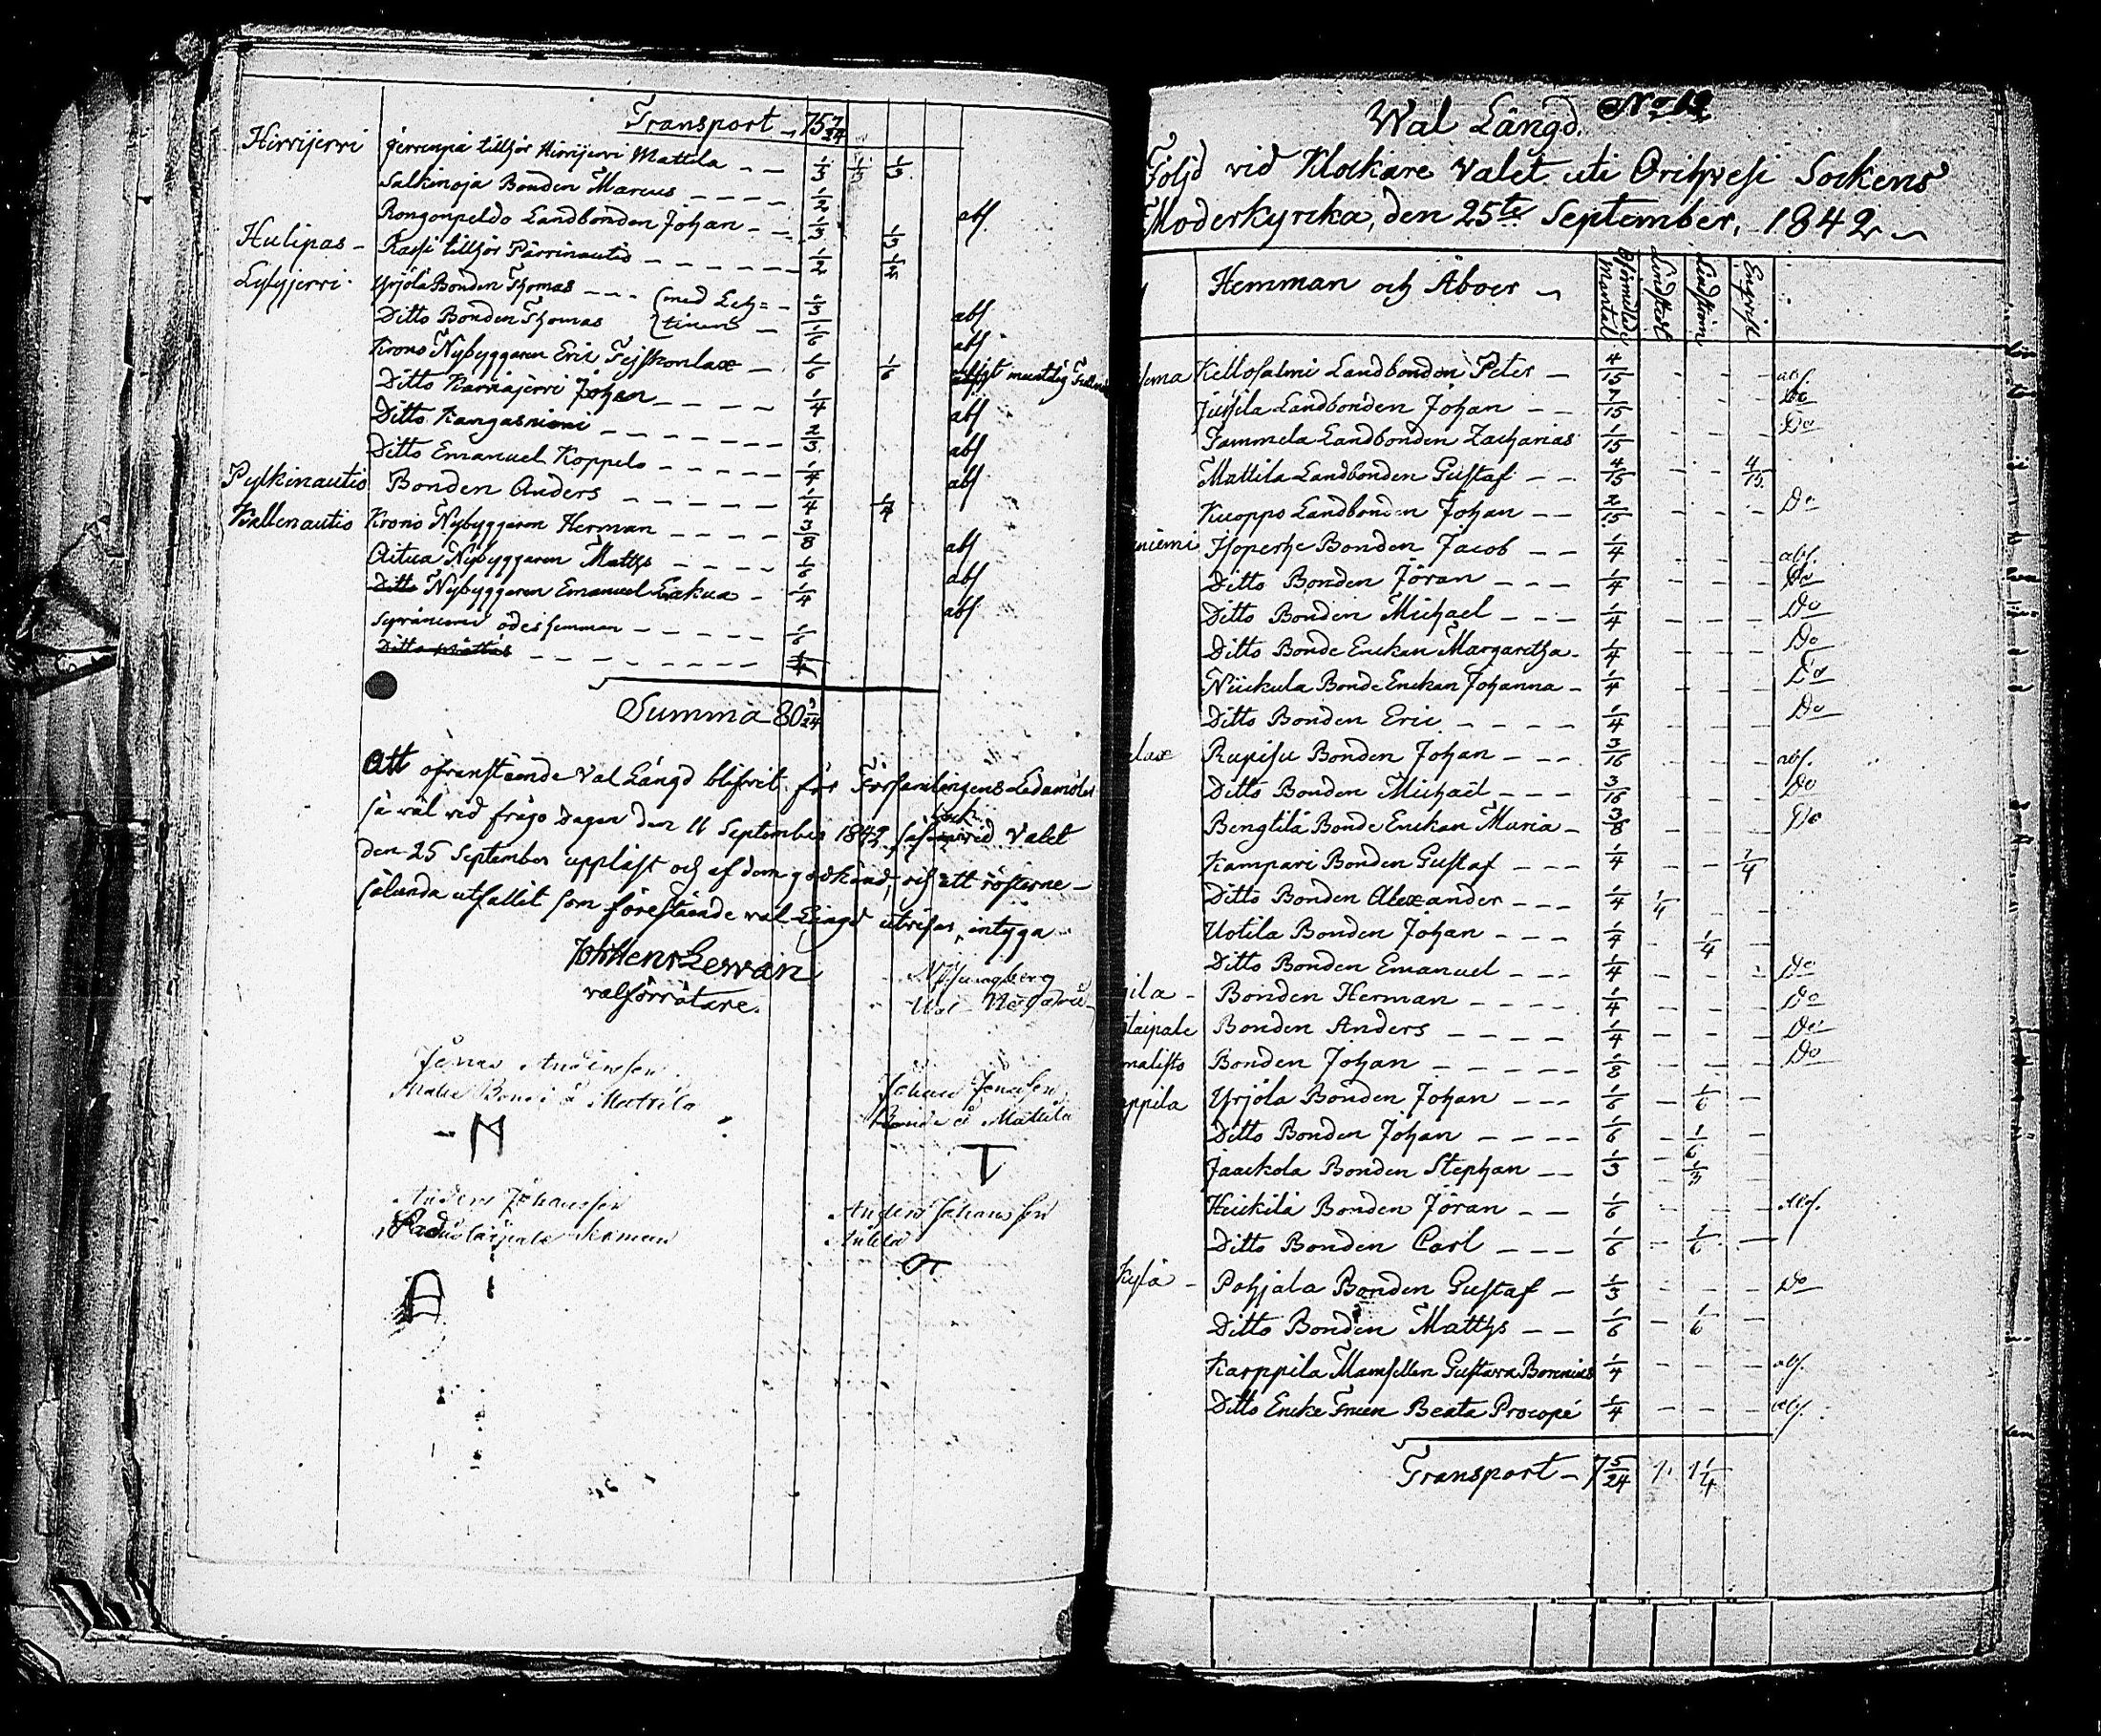 Transport 75 7/24
Hirrijerri Jerrenpä tillhör Hirrijerri Mattila 1/3 1/3 1/3
Salkinoja Bonden Marcus 1/2 abs.
Rongonpeldo Landbonden Johan 1/3 1/3
Hulipas Rassi tillhör Pärrinautio 1/2 1/2
Lylyjerri Yrjölä Bonden Thomas (med Leh= 2/3 abs
Ditto Bonden Thomas tinen 1/6 abs
Krono Nybyggaren Eric 1/6 1/6 muntelig
Ditto Karriajerri Johan 1/4 abs
Ditto Kangasniemi 2/3 abs
Ditto Emanuel Koppelo 1/4 abs
Pylkinautio Bonden Anders 1/4 1/4
Kallenautio Krono Nybyggaren Herman 3/8 abs
Aitua Nybyggaren Matths 1/6 abs
Ditto Nybyggaren Emanuel Liakua 1/4 abs
ödeshemman 1/6
Ditto
Summa 80 9/24
Att ofvanstående Val Längd blifvit för Församlingens Ledamöter
så väl vid frågo Dagen den 11 September 1842 som vid Valet
den 25 September uppläst och af dem godkänd, och att rösterne
sålunda utfallit som förestående val Längd utvisar, intyga
Joh Henr Lewan
valförrättare.
N Ljungberg
Jonas Andersson
Bonde å Mattila
M
Johan Jonasson
Bonde å Mattila
T
Anders Johansson
Herman
Anders Johansson
Anttila
A
Wal Längd. No 12
Följd vid Klockare Valet uti Orihvesi Sockens
Moderkyrka, den 25te September, 1842
Hemman och Åboer Oförmedlade Mantal Lindstedt Lindström Engvist
Kellosalmi Landbonden Peter 4/15 abs.
Jussila Landbonden Johan 7/15 Do
Tammela Landbonden Zacharias 1/15 Do
Mattila Landbonden Gustaf 4/15 4/15
Kuoppo Landbonden Johan 2/15 Do
niemi Isoperhe Bonden Jacob 1/4 abs.
Ditto Bonden Jöran 1/4 Do
Ditto Bonden Michael 1/4 Do
Ditto Bonde Enckan Margaretha 1/4 Do
Niuckula Bonde Enckan Johanna 1/4 Do
Ditto Bonden Eric 1/4 Do
lax Rupisu Bonden Johan 3/16 abs.
Ditto Bonden Michaël 3/16 Do
Bengtilä Bonde Enckan Maria 3/8 Do
Kampari Bonden Gustaf 1/4 1/4
Ditto Bonden Alexander 1/4 1/4
Uotila Bonden Johan 1/4 1/4
Ditto Bonden Emanuel 1/4 Do
ila Bonden Herman 1/4 Do
taipale Bonden Anders 1/4 Do
malisto Bonden Johan 1/8 Do
ppila Yrjölä Bonden Johan 1/6 1/6
Ditto Bonden Johan 1/6 1/6
Jaackola Bonden Stephan 1/3 1/3
Heickilä Bonden Jöran 1/6 abs.
Ditto Bonden Carl 1/6 1/6
Kylä Pohjala Bonden Gustaf 1/3 Do
Ditto Bonden Matths 1/6 1/6
Karppila Mamsellen Gustava Borenius 1/4 abs.
Ditto Encke Fruen Beata Procopé 1/4 abs.
Transport 7 5/24 1. 1 1/4